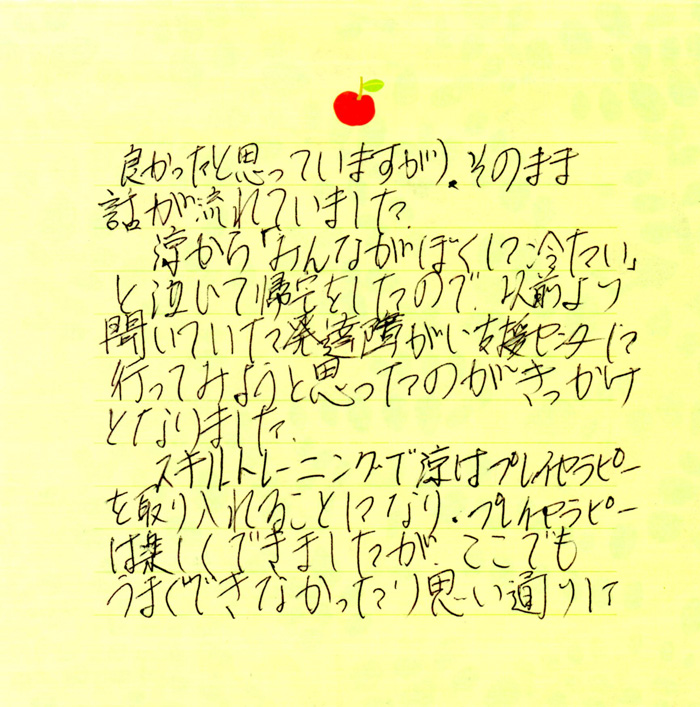 良かったと思っていますが)、そのまま
話が流れていました。
涼から「みんながぼくに冷たい」
と泣いて帰宅をしたので、以前より
聞いていた発達障がい支援センターに
行ってみようと思ったのがきっかけ
となりました。
スキルトレーニングで涼はプレイセラピー
を取り入れることになり、プレイセラピー
は楽しくできましたが、ここでも
うまくできなかったり思い通りに